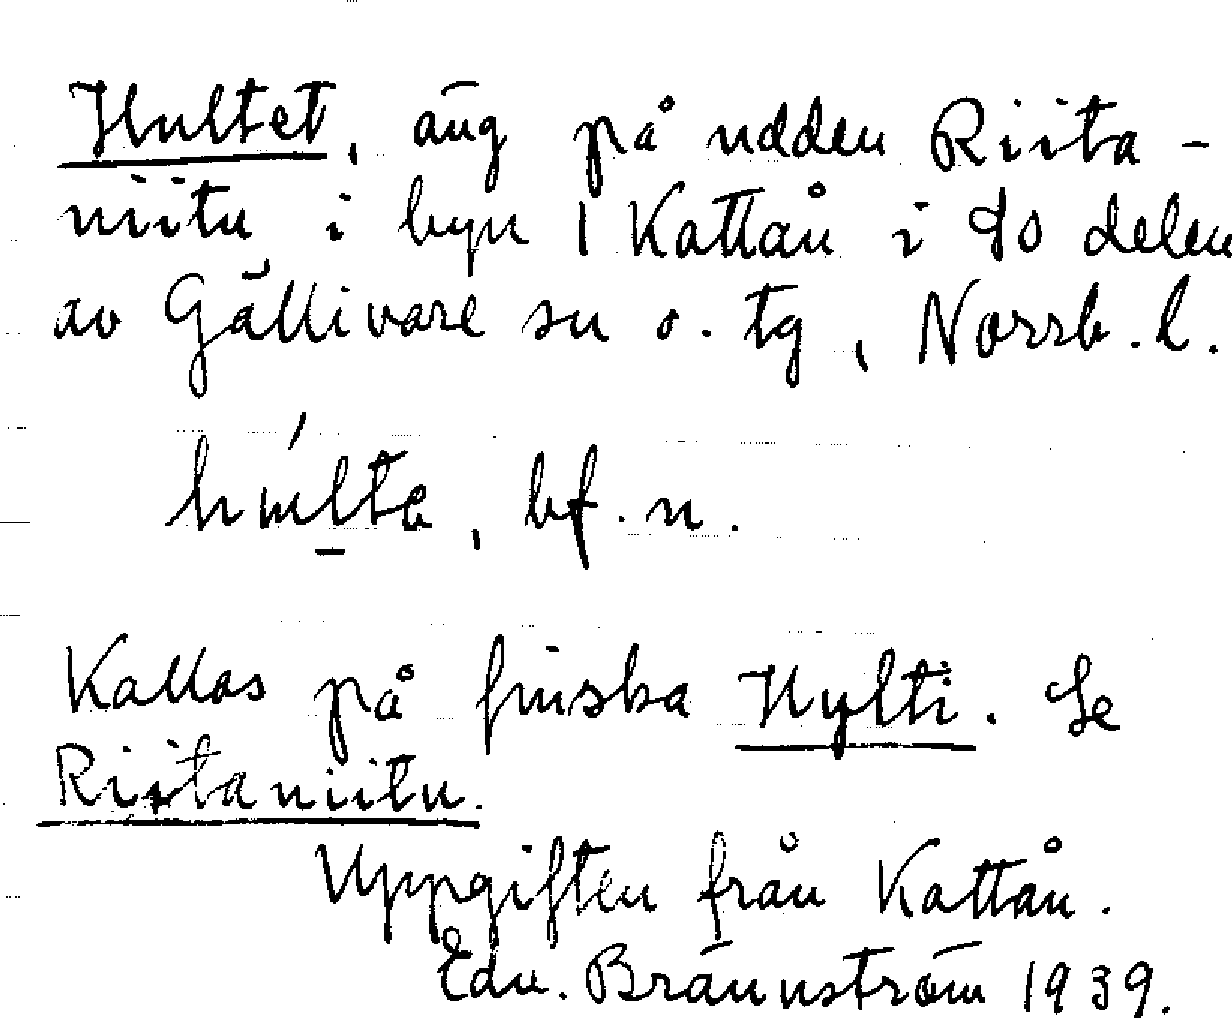 Hultet, äng på udden Riita-
niitu i byn Kattån i so delen
av Gällivare sn o. tg, Norrb. l.
húlte, bf. n.
Kallas på finska Hylti. Se
Riitaniitu.
Uppgiften från Kattån.
Edv. Brännström 1939.